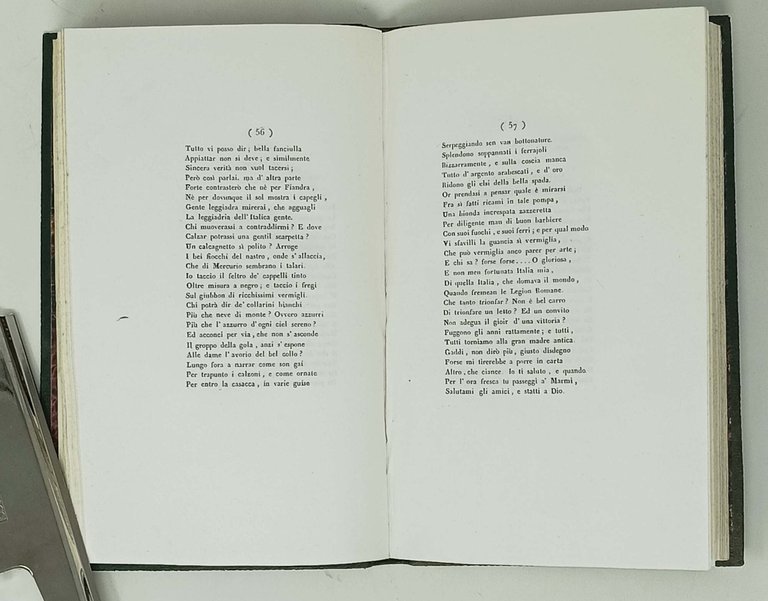 ( 56 )
Tutto vi posso dir; bella fanciulla
Appiattar non si deve; e similmente
Sincera verità non vuol tacersi;
Però così parlai. ma d' altra parte
Forte contrasterò che nè per Fiandra,
Nè per dovunque il sol mostra i capegli,
Gente leggiadra mirerai, che agguagli
La leggiadria dell' Italica gente.
Chi muoverassi a contraddirmi? E dove
Calzar potrassi una gentil scarpetta?
Un calcagnetto sì polito? Arroge
I bei fiocchi del nastro, onde s' allaccia,
Che di Mercurio sembrano i talari.
Io taccio il feltro de' cappelli tinto
Oltre misura a negro; e taccio i fregi
Sul giubbon di ricchissimi vermigli.
Chi potrà dir de' collarini bianchi
Più che neve di monte? Ovvero azzurri
Più che l' azzurro d' ogni ciel sereno?
Ed acconci per via, che non s' asconde
Il groppo della gola, anzi s' espone
Alle dame l' avorio del bel collo?
Lungo fora a narrar come son gai
Per trapunto i calzoni, e come ornate
Per entro la casacca, in varie guise
( 57 )
Serpeggiando sen van bottonature.
Splendono soppannati i ferrajoli
Bizzarramente, e sulla coscia manca
Tutto d' argento arabescati, e d' oro
Ridono gli elsi della bella spada.
Or prendasi a pensar quale è mirarsi
Fra sì fatti ricami in tale pompa,
Una bionda increspata zazzeretta
Per diligente man di buon barbiere
Con suoi fuochi, e suoi ferri; e per qual modo
Vi sfavilli la guancia sì vermiglia,
Che può vermiglia anco parer per arte;
E chi sa? forse forse.... O gloriosa,
E non men fortunata Italia mia,
Di quella Italia, che domava il mondo,
Quando fremean le Legion Romane.
Che tanto trionfar? Non è bel carro
Di trionfare un letto? Ed un convito
Non adegua il gioir d' una vittoria?
Fuggono gli anni rattamente; e tutti,
Tutti torniamo alla gran madre antica.
Gaddi, non dirò più, giusto disdegno
Forse mi tirerebbe a porre in carta
Altro, che ciance. Io ti saluto, e quando
Per l' ora fresca tu passeggi a' Marmi,
Salutami gli amici, e statti a Dio.